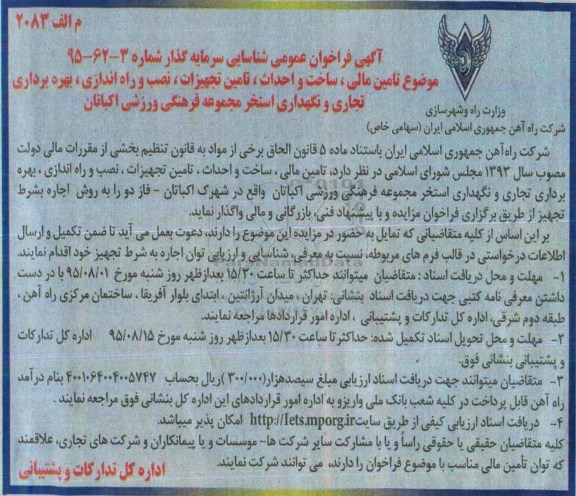 م الف ۲۰۸۳
وزارت راه وشهرسازی
شرکت راه آهن جمهوری اسلامی ایران (سهامی خاص)
آگهی فراخوان عمومی شناسایی سرمایه گذار شماره ۳-۶۲-۹۵
موضوع تامین مالی ، ساخت و احداث ، تامین تجهیزات ، نصب و راه اندازی ، بهره برداری
تجاری و نگهداری استخر مجموعه فرهنگی ورزشی اکباتان
شرکت راه‌آهن جمهوری اسلامی ایران باستناد ماده ۵ قانون الحاق برخی از مواد به قانون تنظیم بخشی از مقررات مالی دولت
مصوب سال ۱۳۹۳ مجلس شورای اسلامی در نظر دارد، تامین مالی ، ساخت و احداث ، تامین تجهیزات ، نصب و راه اندازی ، بهره
برداری تجاری و نگهداری استخر مجموعه فرهنگی ورزشی اکباتان واقع در شهرک اکباتان - فاز دو را به روش اجاره بشرط
تجهیز از طریق برگزاری فراخوان مزایده و با پیشنهاد فنی، بازرگانی و مالی واگذار نماید.
بر این اساس از کلیه متقاضیانی که تمایل به حضور در مزایده این موضوع را دارند، دعوت بعمل می آید تا ضمن تکمیل و ارسال
اطلاعات درخواستی در قالب فرم های مربوطه، نسبت به معرفی، شناسایی و ارزیابی توان اجاره به شرط تجهیز خود اقدام نمایند.
۱- مهلت و محل دریافت اسناد : متقاضیان میتوانند حداکثر تا ساعت ۱۵/۳۰ بعدازظهر روز شنبه مورخ ۹۵/۰۸/۰۱ با در دست
داشتن معرفی نامه کتبی جهت دریافت اسناد بنشانی: تهران ، میدان آرژانتین ، ابتدای بلوار آفریقا ، ساختمان مرکزی راه آهن ،
طبقه دوم شرقی، اداره کل تدارکات و پشتیبانی ، اداره امور قراردادها مراجعه نمایند.
۲- مهلت و محل تحویل اسناد تکمیل شده: حداکثر تا ساعت ۱۵/۳۰ بعدازظهر روز شنبه مورخ ۹۵/۰۸/۱۵ اداره کل تدارکات
و پشتیبانی بنشانی فوق.
۳- متقاضیان میتوانند جهت دریافت اسناد ارزیابی مبلغ سیصدهزار(۳۰۰/۰۰۰)ریال بحساب ۴۰۰۱۰۶۴۰۰۴۰۰۵۷۴۷ بنام درآمد
راه آهن قابل پرداخت در کلیه شعب بانک ملی واریزو به اداره امور قراردادهای این اداره کل بنشانی فوق مراجعه نمایند .
۴- دریافت اسناد ارزیابی کیفی از طریق سایت http://Iets.mporg.ir امکان پذیر میباشد.
کلیه متقاضیان حقیقی یا حقوقی راساً و یا با مشارکت سایر شرکت ها- موسسات و یا پیمانکاران و شرکت های تجاری، علاقمند
که توان تأمین مالی مناسب با موضوع فراخوان را دارند، می توانند شرکت نمایند.
اداره کل تدارکات و پشتیبانی